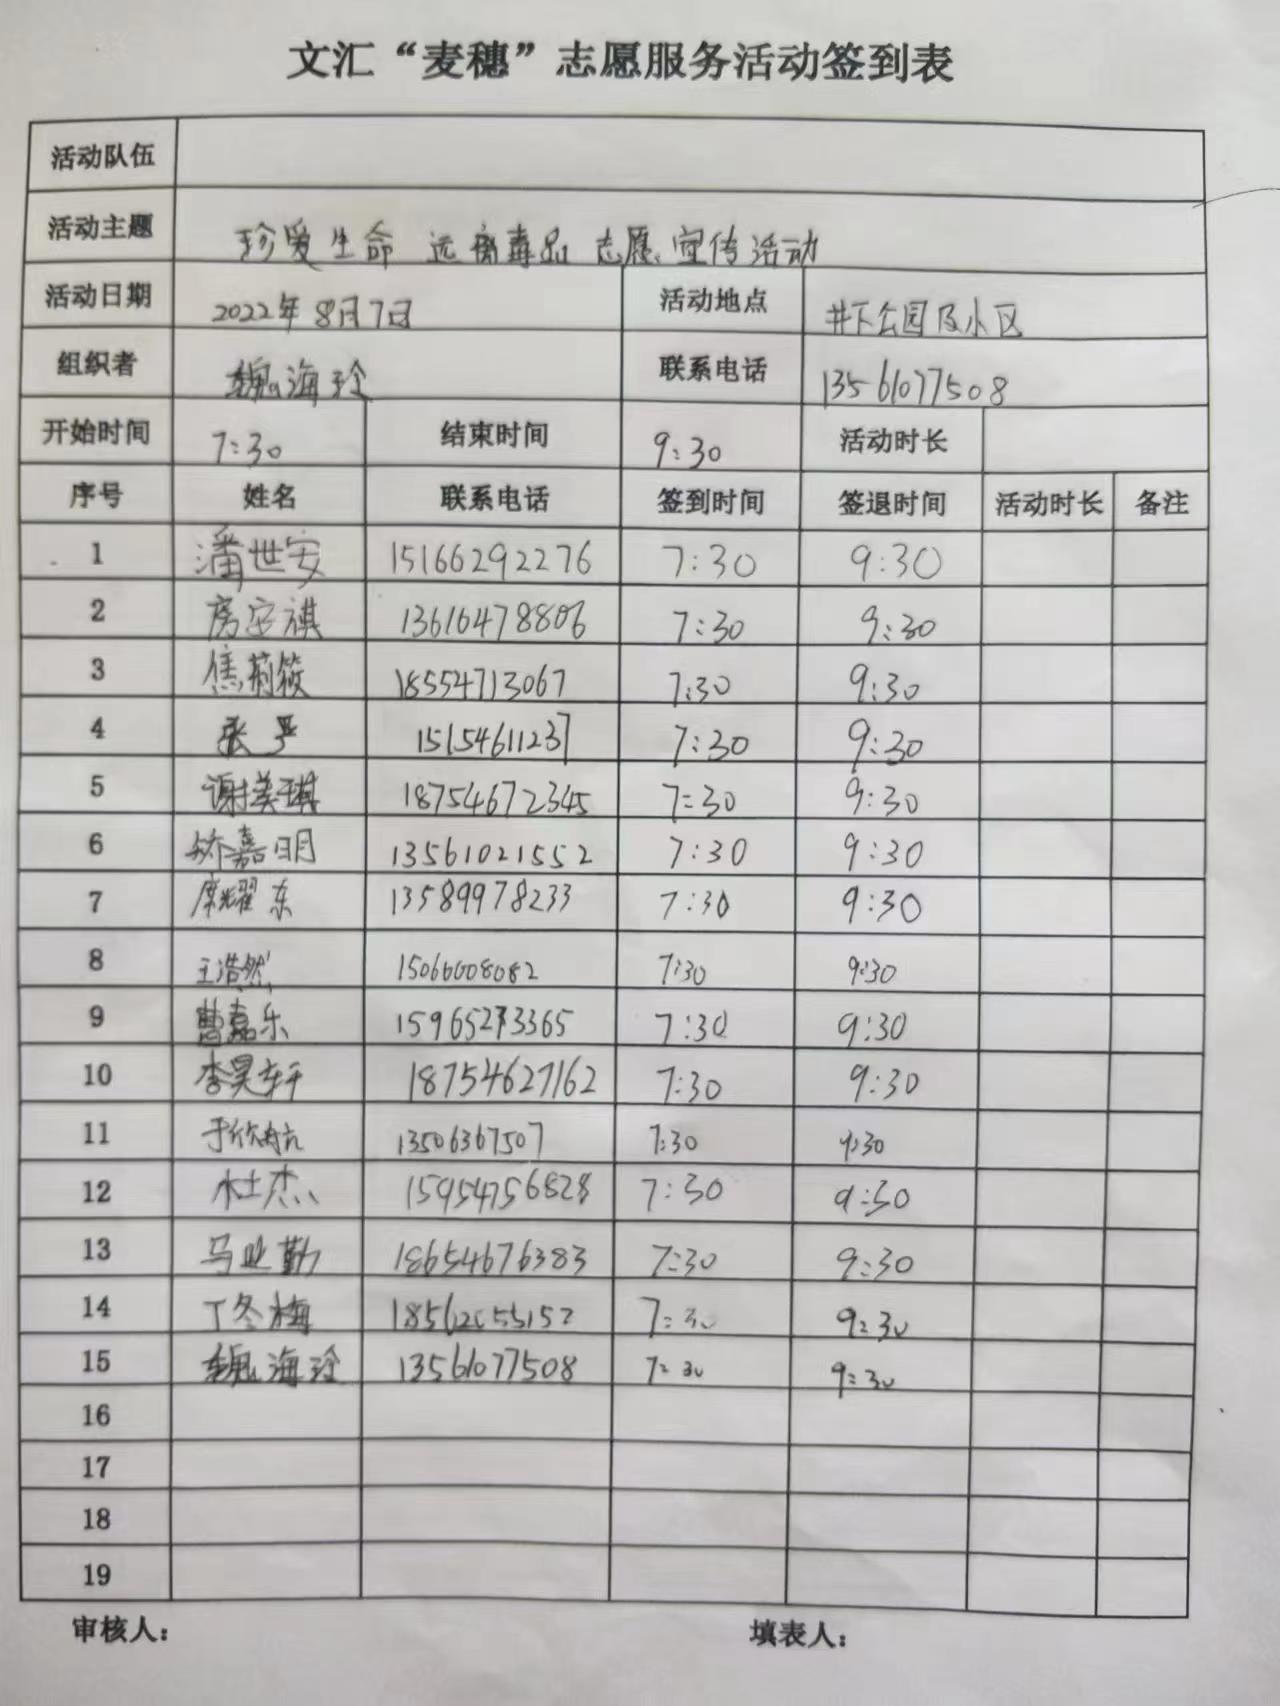 文汇“麦穗”志愿服务活动签到表
活动队伍
活动主题 珍爱生命 远离毒品 志愿宣传活动
活动日期 2022年8月7日 活动地点 井下公园及小区
组织者 魏海玲 联系电话 13561077508
开始时间 7:30 结束时间 9:30 活动时长
序号 姓名 联系电话 签到时间 签退时间 活动时长 备注
1 潘世安 15166292276 7:30 9:30
2 房安祺 13616478806 7:30 9:30
3 焦荊筱 18554713067 7:30 9:30
4 张严 15154611237 7:30 9:30
5 谢美琪 18754672345 7:30 9:30
6 矫嘉明 13561021552 7:30 9:30
7 席耀东 13589978233 7:30 9:30
8 王浩然 15066008082 7:30 9:30
9 曹嘉乐 15965273365 7:30 9:30
10 李昊轩 18754627162 7:30 9:30
11 于欣航 13506367507 7:30 9:30
12 杜杰 15954756828 7:30 9:30
13 马业勤 18654676383 7:30 9:30
14 丁冬梅 7:30 9:30
15 魏海玲 13561077508 7:30 9:30
16
17
18
19
审核人： 填表人：